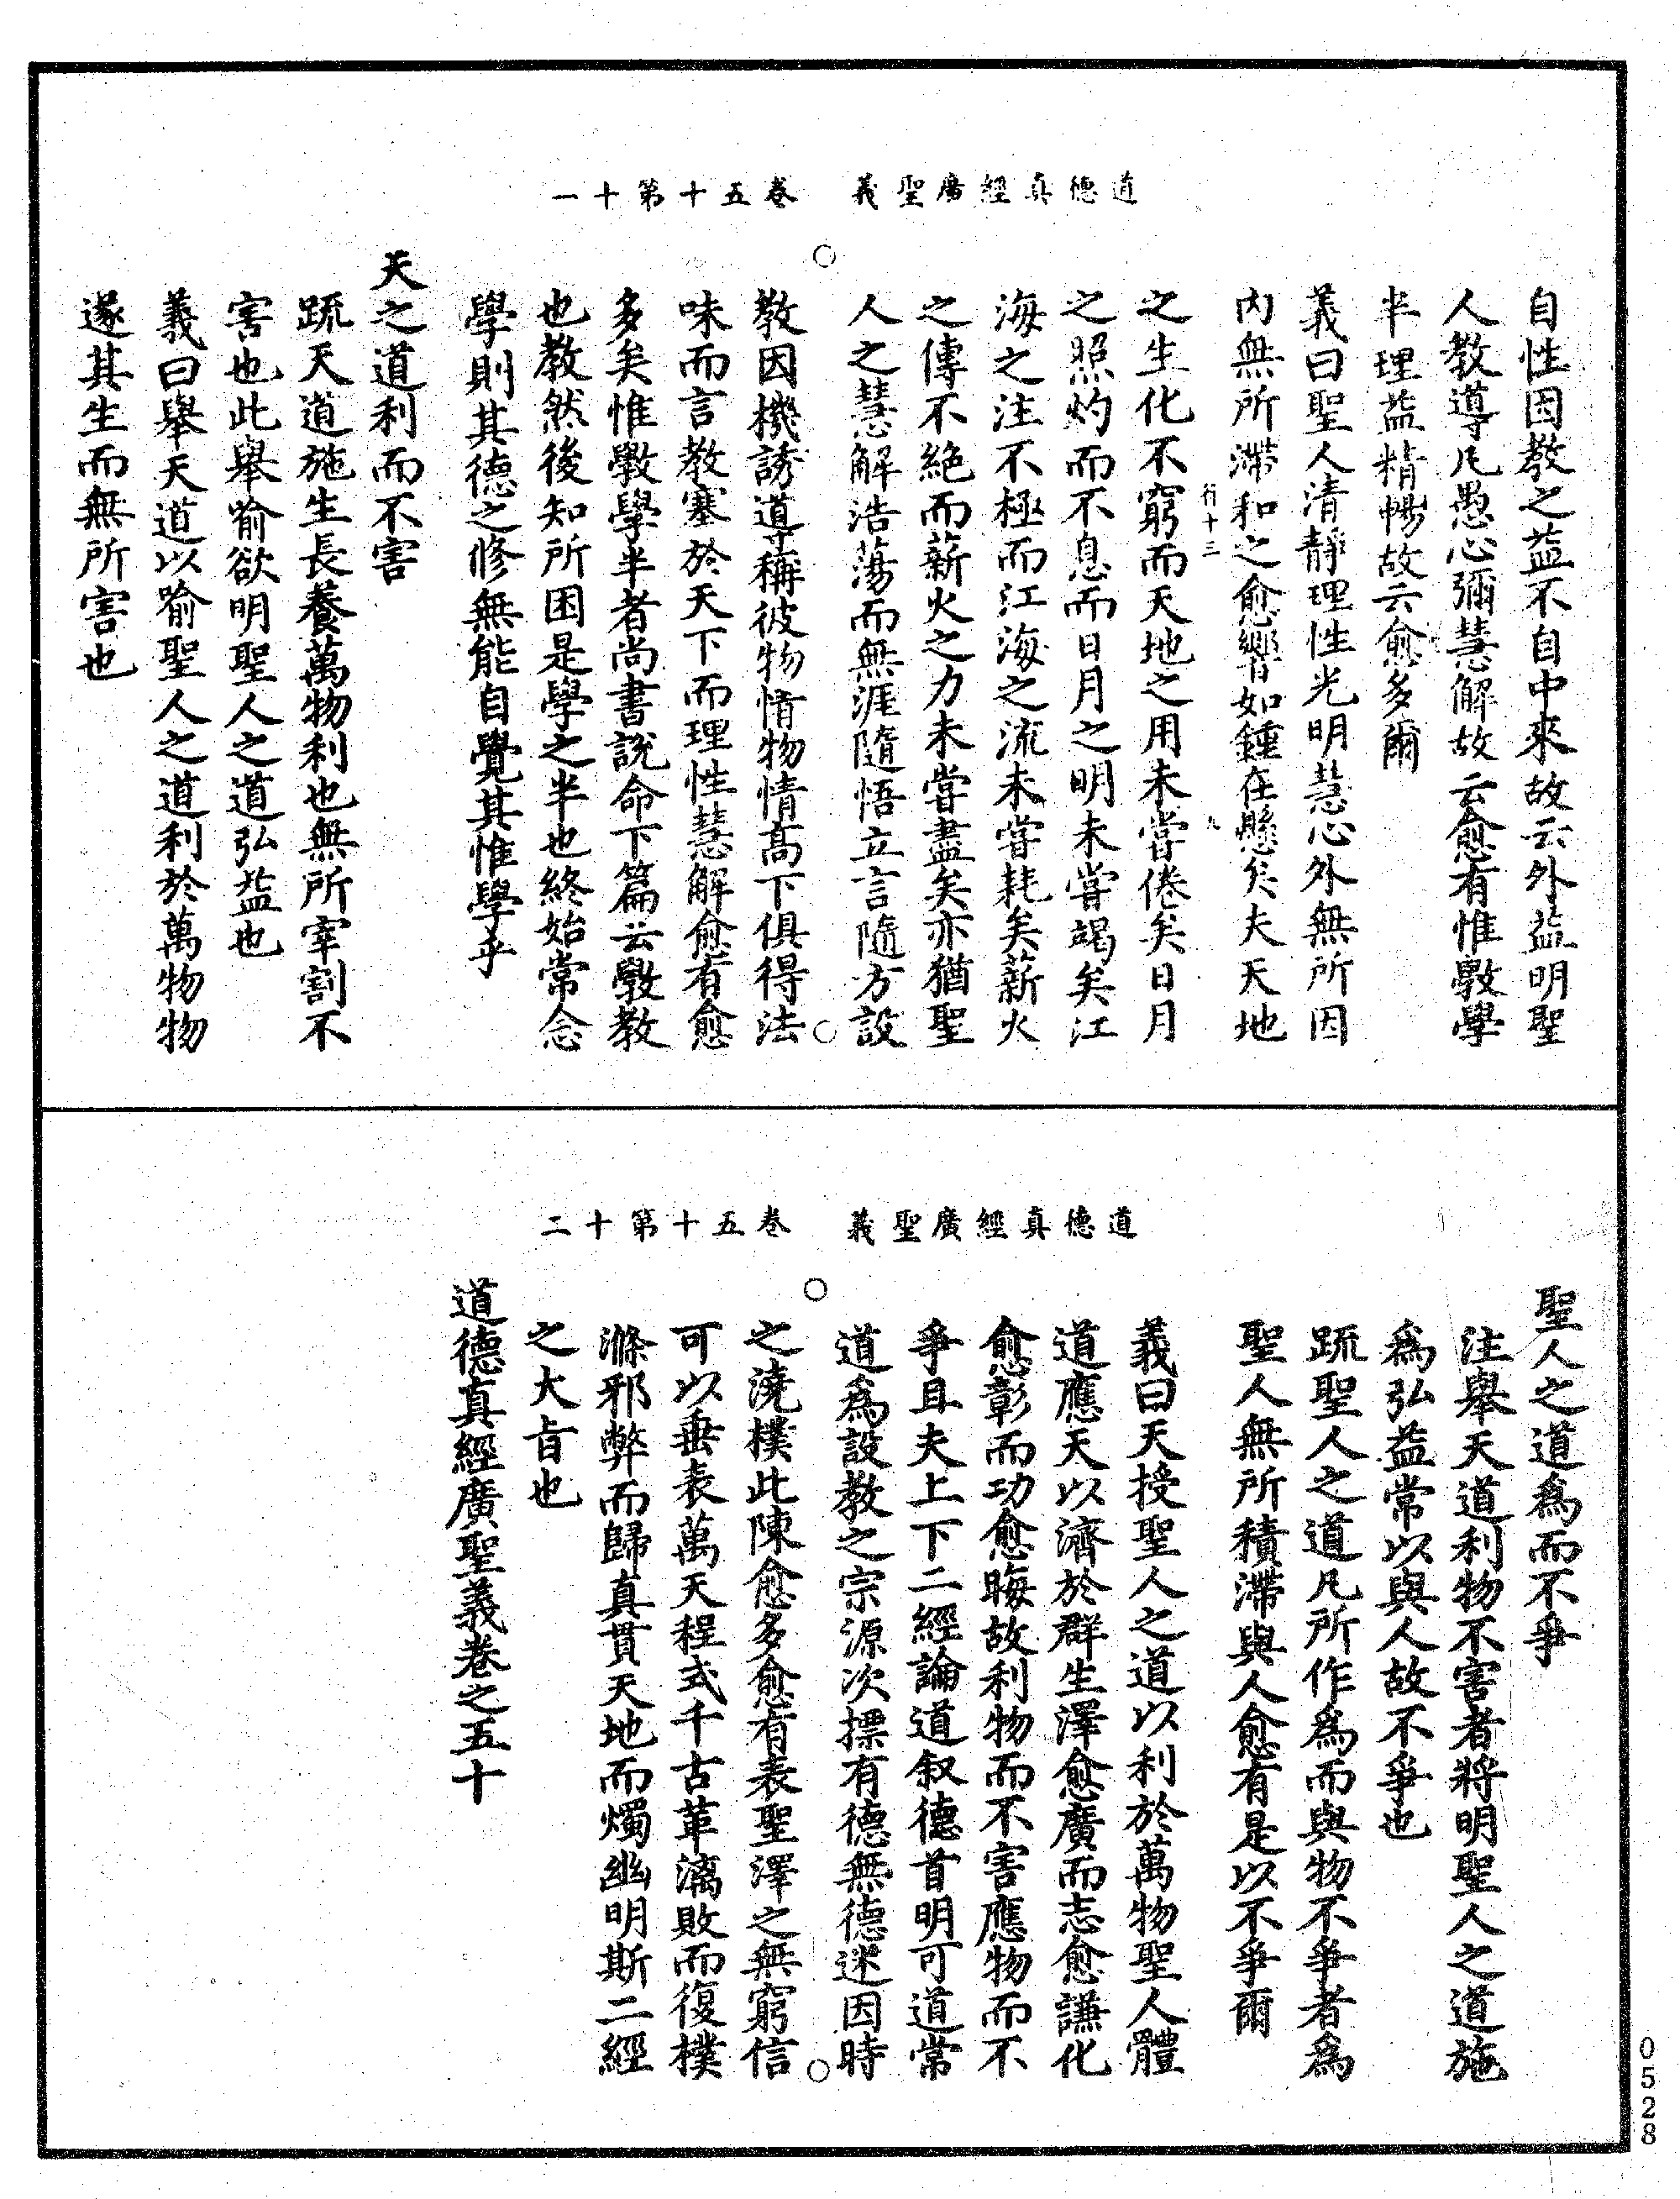 道德真經廣聖義　卷五十第十一
自性因教之益不自中來故云外益明聖
人教導凡愚心彌慧解故云愈有惟斅學
半理益精暢故云愈多爾
義曰聖人清靜理性光明慧心外無所因
內無所滯和之愈響如鍾在懸矣夫天地
行十三　九
之生化不窮而天地之用未嘗倦矣日月
之照灼而不息而日月之明未嘗竭矣江
海之注不極而江海之流未嘗耗矣薪火
之傳不絕而薪火之力未嘗盡矣亦猶聖
人之慧解浩蕩而無涯隨悟立言隨方設
教因機誘導稱彼物情物情高下俱得法
味而言教塞於天下而理性慧解愈有愈
多矣惟斅學半者尚書說命下篇云斅教
也教然後知所困是學之半也終始常念
學則其德之修無能自覺其惟學乎
天之道利而不害
疏天道施生長養萬物利也無所宰割不
害也此舉喻欲明聖人之道弘益也
義曰舉天道以喻聖人之道利於萬物物
遂其生而無所害也
道德真經廣聖義　卷五十第十二
聖人之道為而不爭
注舉天道利物不害者將明聖人之道施
為弘益常以與人故不爭也
疏聖人之道凡所作為而與物不爭者為
聖人無所積滯與人愈有是以不爭爾
義曰天授聖人之道以利於萬物聖人體
道應天以濟於群生澤愈廣而志愈謙化
愈彰而功愈晦故利物而不害應物而不
爭且夫上下二經論道叙德首明可道常
道為設教之宗源次摽有德無德迷因時
之澆樸此陳愈多愈有表聖澤之無窮信
可以垂表萬天程式千古革漓敗而復樸
滌邪弊而歸真貫天地而燭幽明斯二經
之大旨也
道德真經廣聖義卷之五十
0528